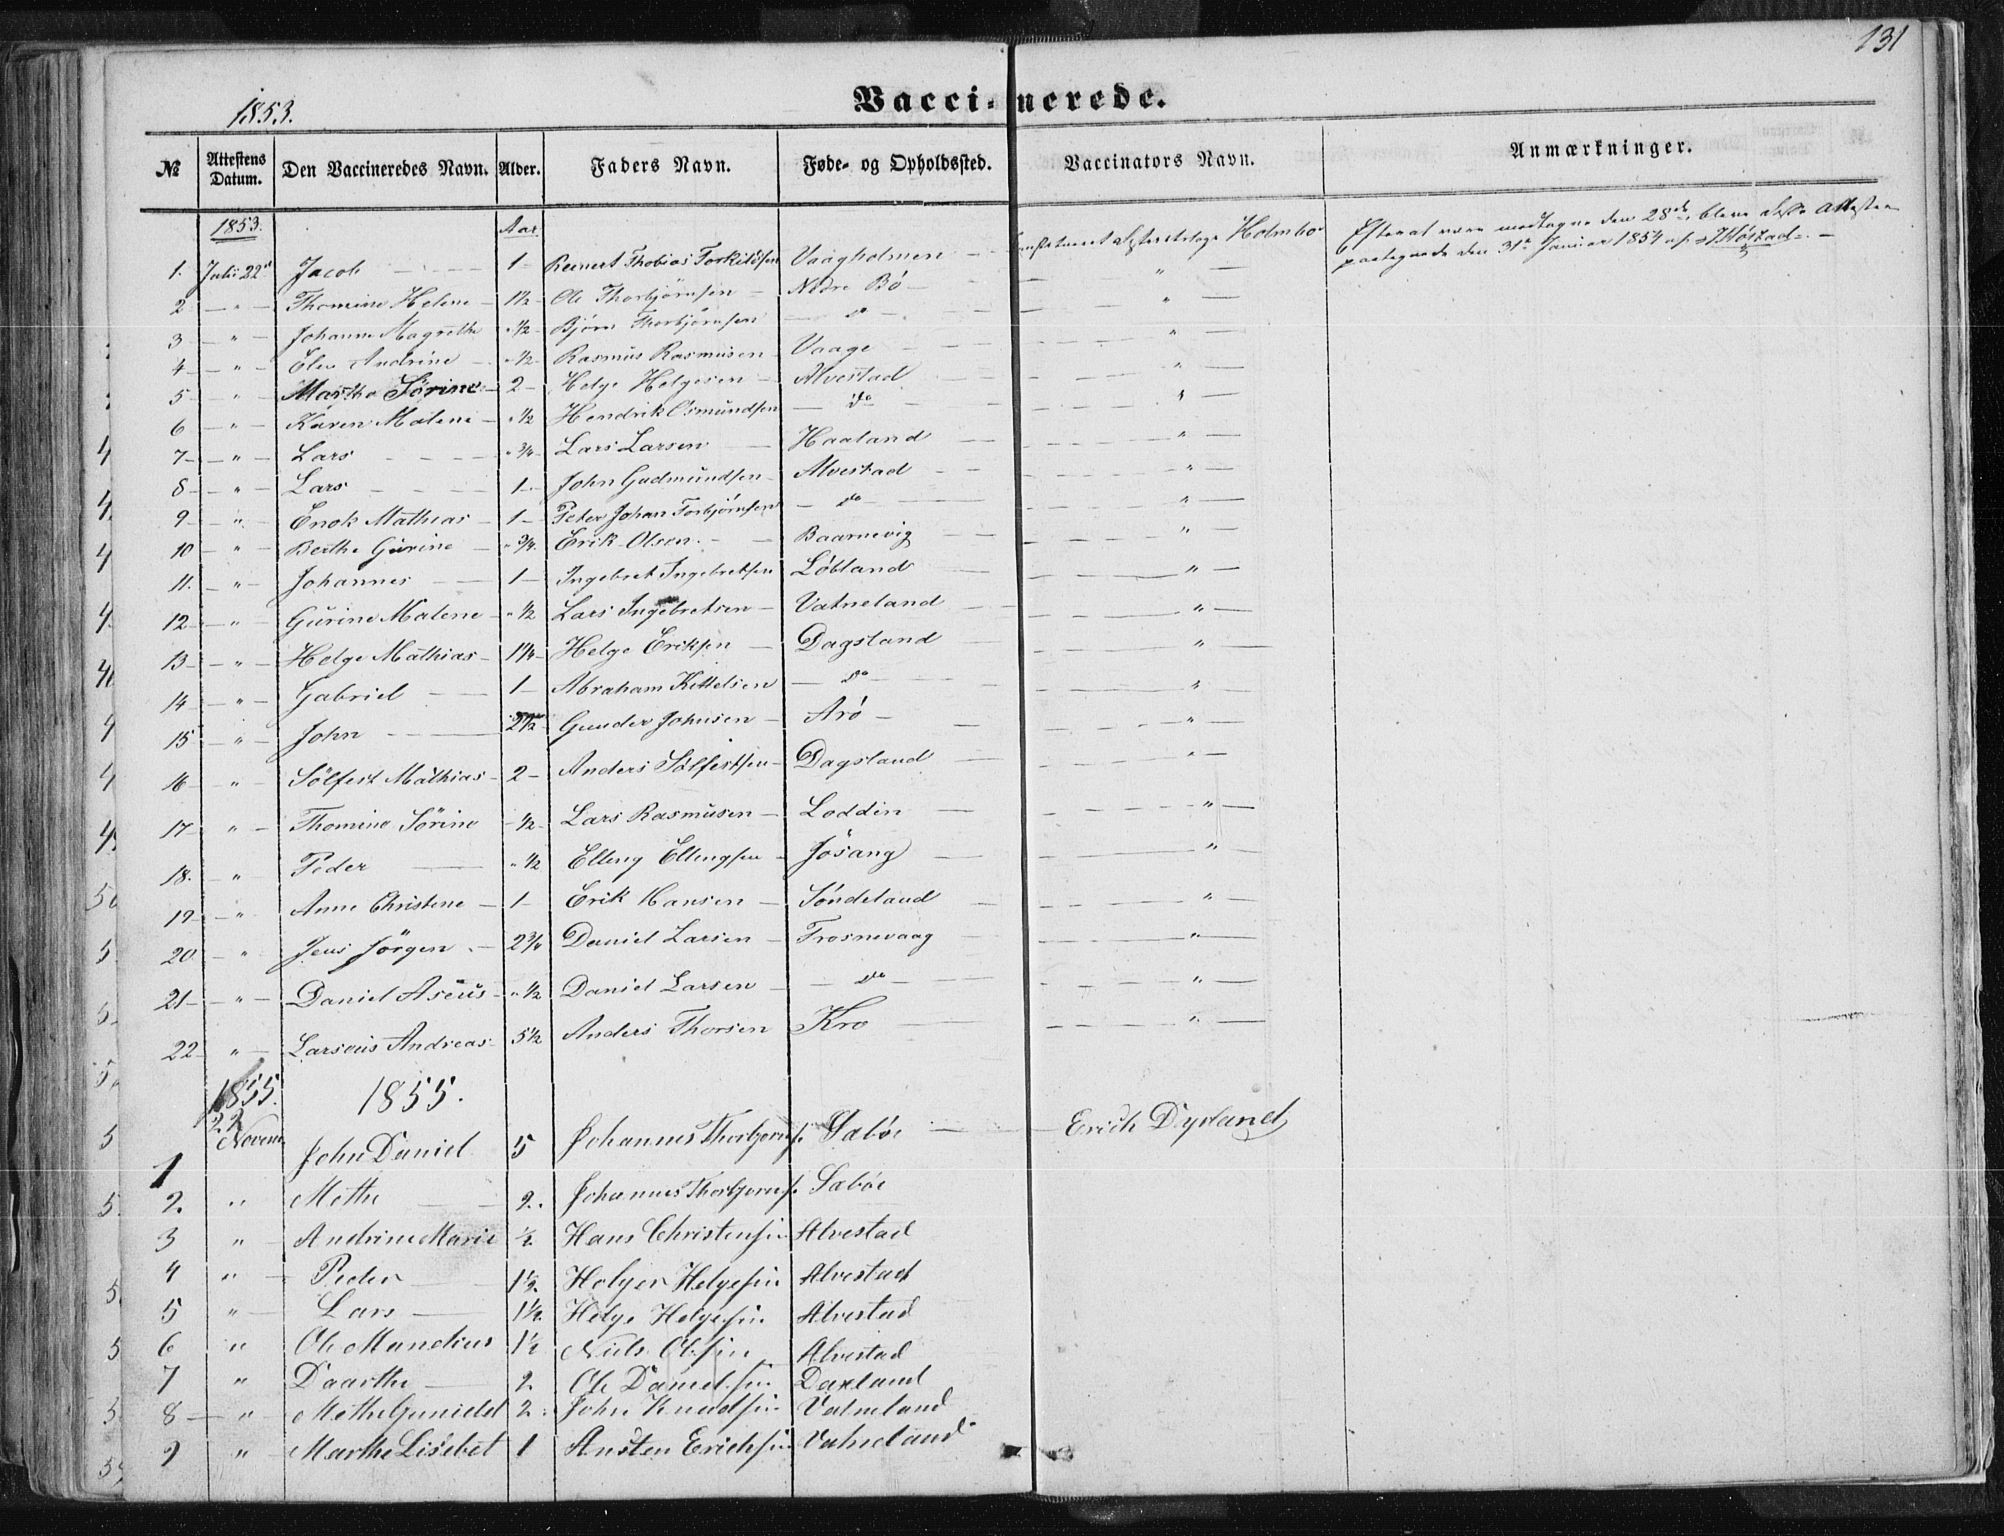 131
1853.
Vaccinerede.
№ Attestens Datum. Den Vaccineredes Navn. Alder. Faders Navn. Føde- og Opholdssted. Vaccinators Navn. Anmærkninger.
1853. Aar
1. Juli 22 Jacob 1 Reinert Thobias Torkildsen Vaagholmen Holmboe
den 28de, bleve disse Attester
den 31te Januar 1854 af
2 " Thomine Helene 1½ Ole Thorbjørnsen Nedre Bö "
3 " Johanne Magrethe " ½ Bjørn Thorbjørnsen do "
4 " Elen Andrine " ½ Rasmus Rasmusen Vaage "
5 " Martha Sörine 2 Helge Helgesen Alvestad "
6 " Karen Malene " ½ Hendrik Osmundsen do "
7 " Lars " ¾ Lars Larsen Haaland "
8 " Lars 1 John Gudmundsen Alvestad "
9 " Enok Mathias 1 Peter Johan Torbjørnsen do "
10 " Berthe Gurine " ¾ Erik Olsen Baarnevig "
11. " Johannes 1 Ingebret Ingebretsen Löbland "
12 " Gurine Malene " ½ Lars Ingebretsen Vatneland "
13 " Helge Mathias 1¼ Helge Eriksen Dagsland "
14 " Gabriel 1 Abraham Kittelsen do "
15 " John 2½ Gunder Johnsen Arö "
16 " Sölfest Mathias 2 Anders Sölfestsen Dagsland "
17 " Thomine Sörine ½ Lars Rasmusen Loddin "
18. " Peder " ½ Elling Ellingsen Jösang "
19 " Anne Christene 1 Erik Hansen Söndeland "
20 " Jens Jörgen 2¾ Daniel Larsen Trosnevaag "
21 " Daniel Aseus " ½ Daniel Larsen do "
22 " Larseus Andreas 5½ Anders Thorsen Kro "
1855. 1855.
1 22 Novem John Daniel 5 Johannes Thorbjørns. Sabøe Erich Dysland
2. " Methe 2. Johannes Thorbjørns. Sabøe
3 " Andrine Marie ½ Hans Christensen Alvestad
4 " Peder 1½ Holger Helgesen Alvestad
5 " Lars 1½ Helge Helgesen Alvestad
6 " Ole Mandius 1½ Niels Olsen Alvestad
7 " Daarthe 2 Ole Danielsen Daxland
8 " Methe Gunield 2 John Knudsen Vatneland
9 " Marthe Lisebet 1 Ansten Erichsen Vatneland